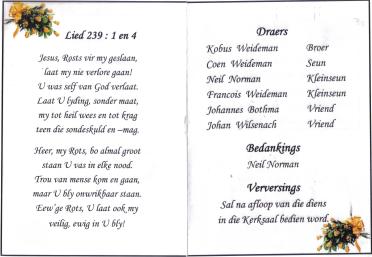 Lied 239 : 1 en 4
Jesus, Rots vir my geslaan,
laat my nie verlore gaan!
U was self van God verlaat.
Laat U lyding, sonder maat,
my tot heil wees en tot krag
teen die sondeskuld en –mag.
Heer, my Rots, bo almal groot
staan U vas in elke nood.
Trou van mense kom en gaan,
maar U bly onwrikbaar staan.
Eew'ge Rots, U laat ook my
veilig, ewig in U bly!
Draers
Kobus Weideman Broer
Coen Weideman Seun
Neil Norman Kleinseun
Francois Weideman Kleinseun
Johannes Bothma Vriend
Johan Wilsenach Vriend
Bedankings
Neil Norman
Verversings
Sal na afloop van die diens
in die Kerksaal bedien word.